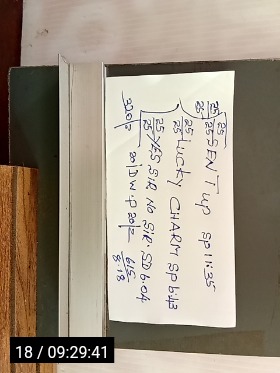 25 25
25 25 SENT UP SP 11:35
25
25 LUCKY CHARM SP 6:43
25
25 YES SIR NO SIR. SD 6.04
200/= 20/D W.P 20/= 6:15
8:18
18 / 09:29:41